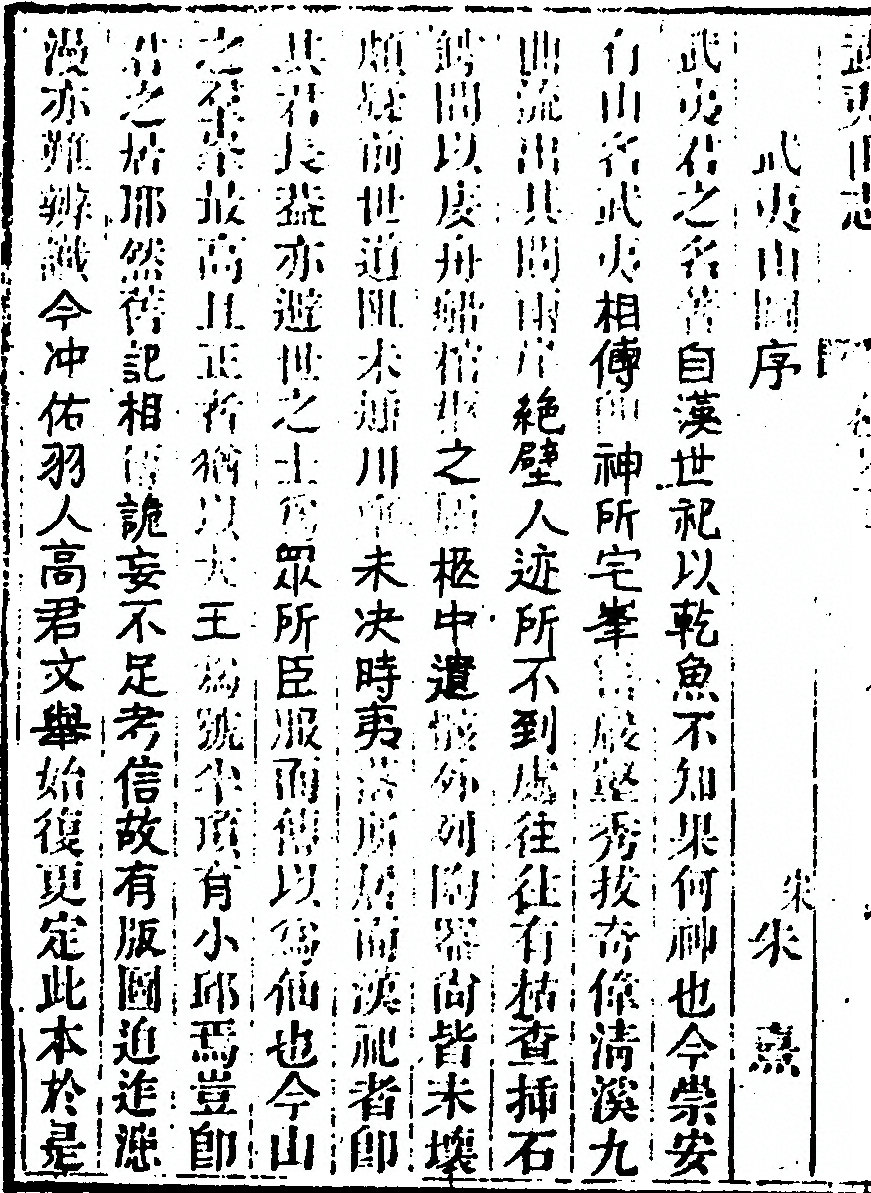 武夷山圖序
宋 朱 熹
武夷君之名著自漢世祀以乾魚不知果何神也今崇安
有山名武夷相傳即神所宅峯巒巖壑秀拔奇偉清溪九
曲流出其間兩岸絶壁人迹所不到處往往有枯查插石
罅間以庋舟船棺柩之屬柩中遺骸外列陶器尚皆未壞
頗疑前世道阻未通川壅未决時夷落所居而漢祀者即
其君長葢亦避世之士為眾所臣服而傳以為仙也今山
之羣峯最高且正者猶以大王為號半頂有小邱焉豈即
君之居耶然舊記相傳詭妄不足考信故有版圖迫迮漶
漫亦難辨識今冲佑羽人高君文舉始復更定此本於是